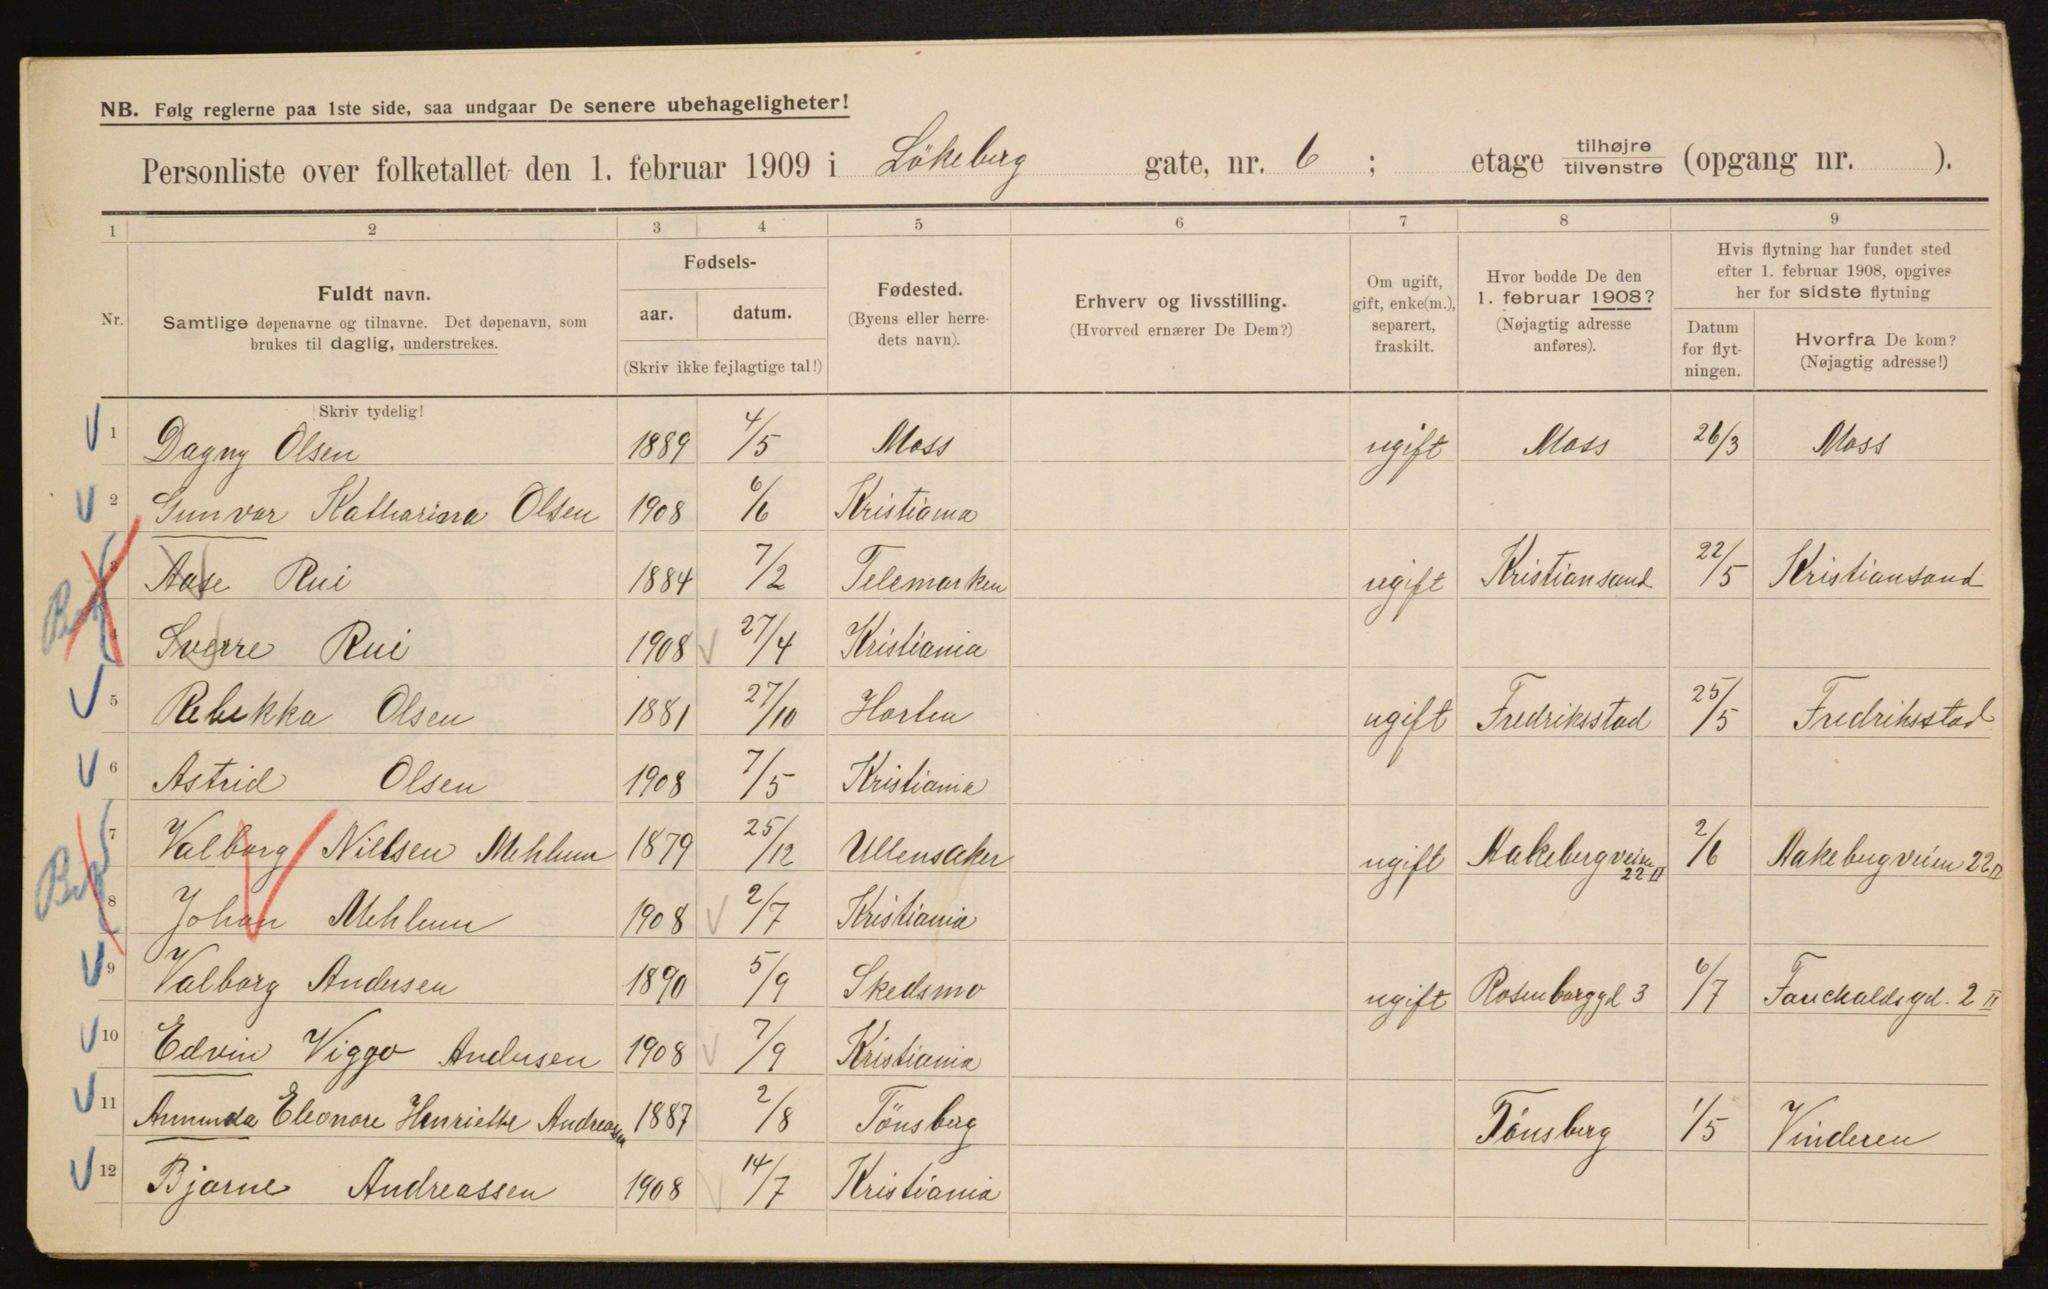 NB. Følg reglerne paa 1ste side, saa undgaar De senere ubehageligheter!
Personliste over folketallet den 1. februar 1909 i Lökeberg gate, nr. 6 ; etage tilhøjre tilvenstre (opgang nr. ).
1 2 3 4 5 6 7 8 9
Nr.
Fuldt navn.
Samtlige døpenavne og tilnavne. Det døpenavn, som
brukes til daglig, understrekes.
Skriv tydelig!
Fødsels-
aar. datum.
(Skriv ikke fejlagtige tal!)
Fødested.
(Byens eller herre-
dets navn).
Erhverv og livsstilling.
(Hvorved ernærer De Dem?)
Om ugift,
gift, enke(m.),
separert,
fraskilt.
Hvor bodde De den
1. februar 1908?
(Nøjagtig adresse
anføres).
Hvis flytning har fundet sted
efter 1. februar 1908, opgives
her for sidste flytning
Datum
for flyt-
ningen.
Hvorfra De kom?
(Nøjagtig adresse!)
1 Dagny Olsen 1889 4/5 Moss ugift Moss 26/3 Moss
2 Gunvor Katharina Olsen 1908 6/6 Kristiania
3 Aase Rui 1884 7/2 Telemarken ugift Kristiansand 22/5 Kristiansand
4 Sverre Rui 1908 27/4 Kristiania
5 Rebekka Olsen 1881 27/10 Horten ugift Fredriksstad 25/5 Fredriksstad
6 Astrid Olsen 1908 7/5 Kristiania
7 Valborg Nielsen Mehlum 1879 25/12 Ullensaker ugift Aakebergveien 22 II 2/6 Aakebergveien 22 II
8 Johan Mehlum 1908 2/7 Kristiania
9 Valborg Andersen 1890 5/9 Skedsmo ugift Rosenborggd 3 6/7 Fauchaldsgd. 2 II
10 Edvin Viggo Andersen 1908 7/9 Kristiania
11 Amunda Eleonore Henriette Andreassen 1887 2/8 Tönsberg Tönsberg 1/5 Vinderen
12 Bjarne Andreassen 1908 14/7 Kristiania